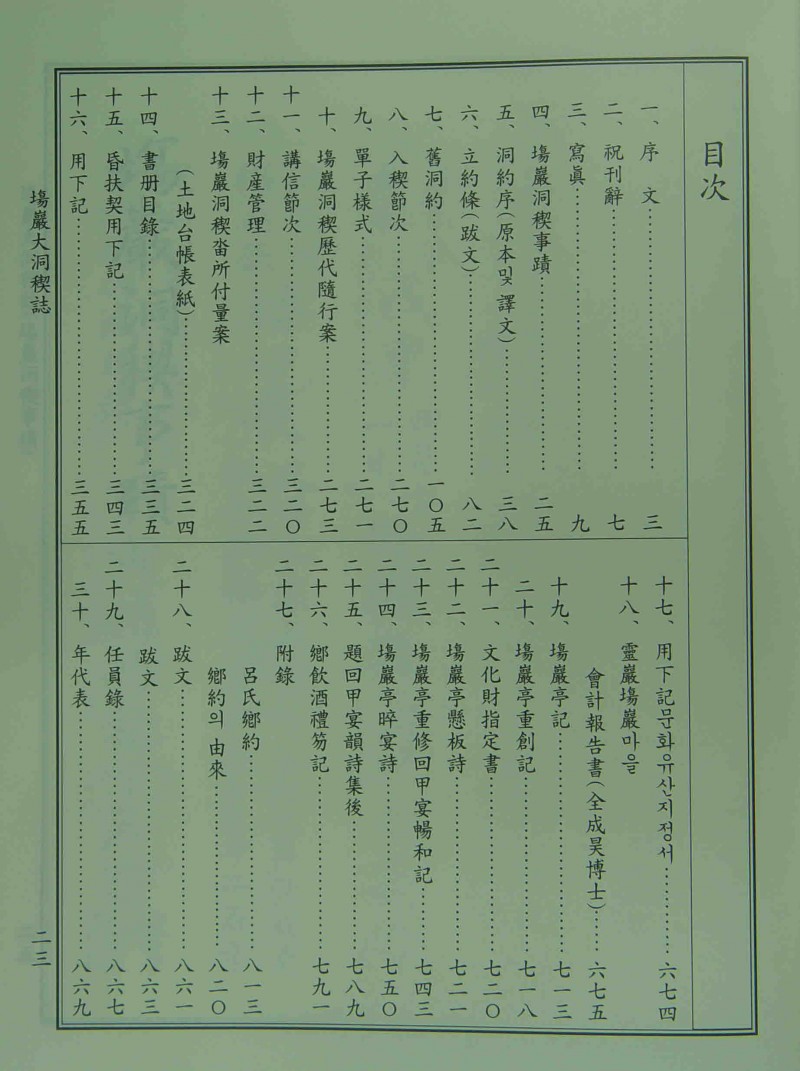 目次
一、序 文……三
二、祝刊辭……七
三、寫眞……九
四、塲巖洞稧事蹟……二五
五、洞約序(原本및 譯文)……三八
六、立約條(跋文)……八二
七、舊洞約……一〇五
八、入稧節次……二七〇
九、單子樣式……二七一
十、塲巖洞稧歷代隨行案……二七三
十一、講信節次……三二〇
十二、財産管理……三二二
十三、塲巖洞稧畓所付量案
(土地台帳表紙)……三二四
十四、書册目錄……三三五
十五、昏扶契用下記……三四三
十六、用下記……三五五
十七、用下記문화유산지정서……六七四
十八、靈巖塲巖마을
會計報告書(全成昊博士)……六七五
十九、塲巖亭記……七一三
二十、塲巖亭重創記……七一八
二十一、文化財指定書……七二〇
二十二、塲巖亭懸板詩……七二一
二十三、塲巖亭重修回甲宴暢和記……七四三
二十四、塲巖亭晬宴詩……七五〇
二十五、題回甲宴韻詩集後……七八九
二十六、鄉飮酒禮笏記……七九一
二十七、附錄
呂氏鄉約……八一三
鄉約의 由來……八二〇
二十八、跋文……八六一
跋文……八六三
二十九、任員錄……八六七
三十、年代表……八六九
塲巖大洞稧誌
二三